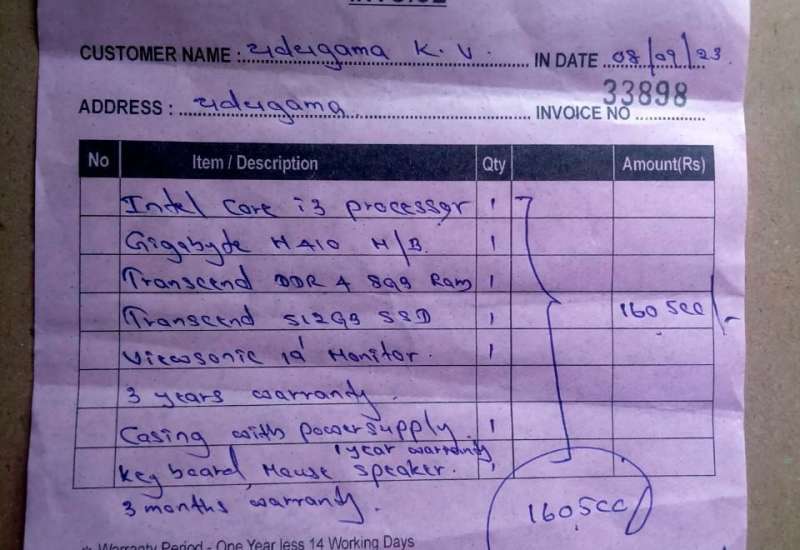 INVOICE
CUSTOMER NAME : යටියagama K. V. IN DATE 08/09/23.
33898
ADDRESS : INVOICE NO
No Item / Description Qty Amount(Rs)
Intel Core i3 processor 1
Gigabyte H410 M/B. 1
Transcend DDR 4 8GB Ram 1
Transcend 512GB SSD 1 160500/-
Viewsonic 19" Monitor. 1
3 years warranty.
Casing with powersupply. 1
1 year warranty
Key board, Mouse speaker. 1
3 months warranty.
160500/
* Warranty Period - One Year less 14 Working Days